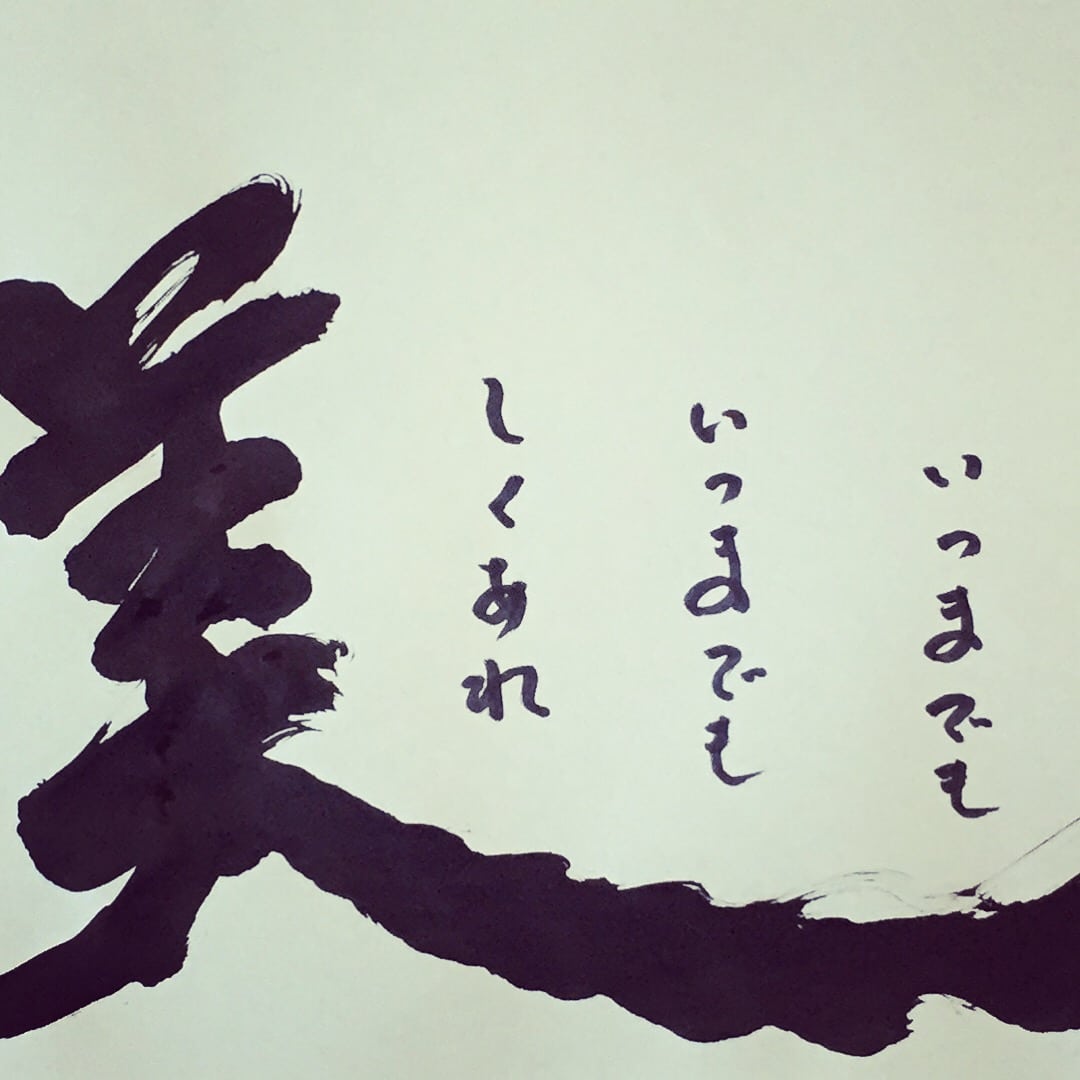 いつまでも
いつまでも
美
しくあれ